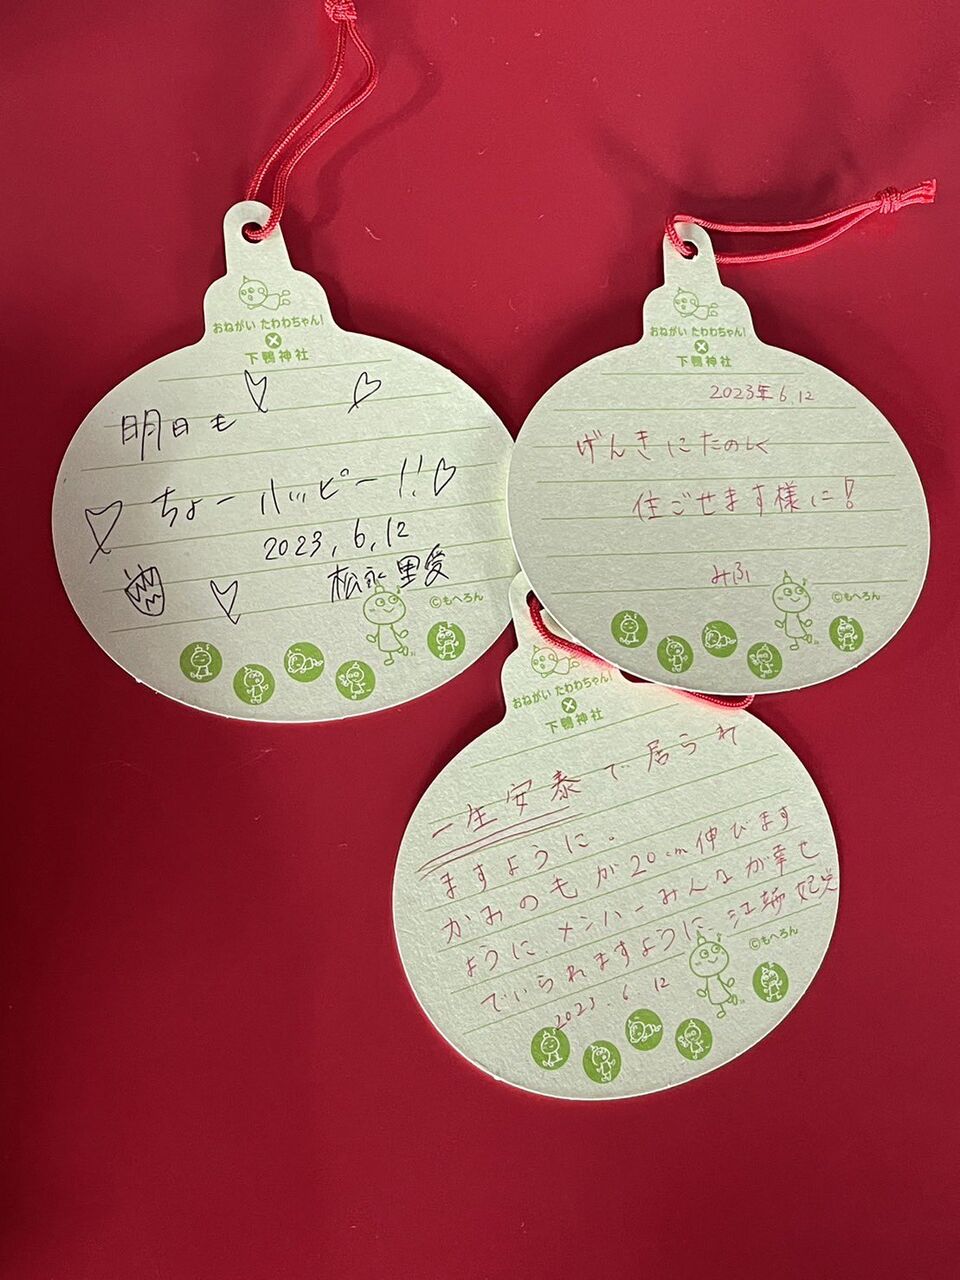 おねがい たわわちゃん!
×
下鴨神社
明日も
ちょーハッピー!!
2023,6,12
松永里愛
©もへろん
おねがい たわわちゃん!
×
下鴨神社
2023年6.12
げんきにたのしく
住ごせます様に!
みふ
©もへろん
おねがい たわわちゃん!
×
下鴨神社
一生安泰で居られ
ますように。
かみのもが20cm伸びます
ように、メンバーみんなが幸せ
でいられますように、江端妃咲
2023.6.12
©もへろん